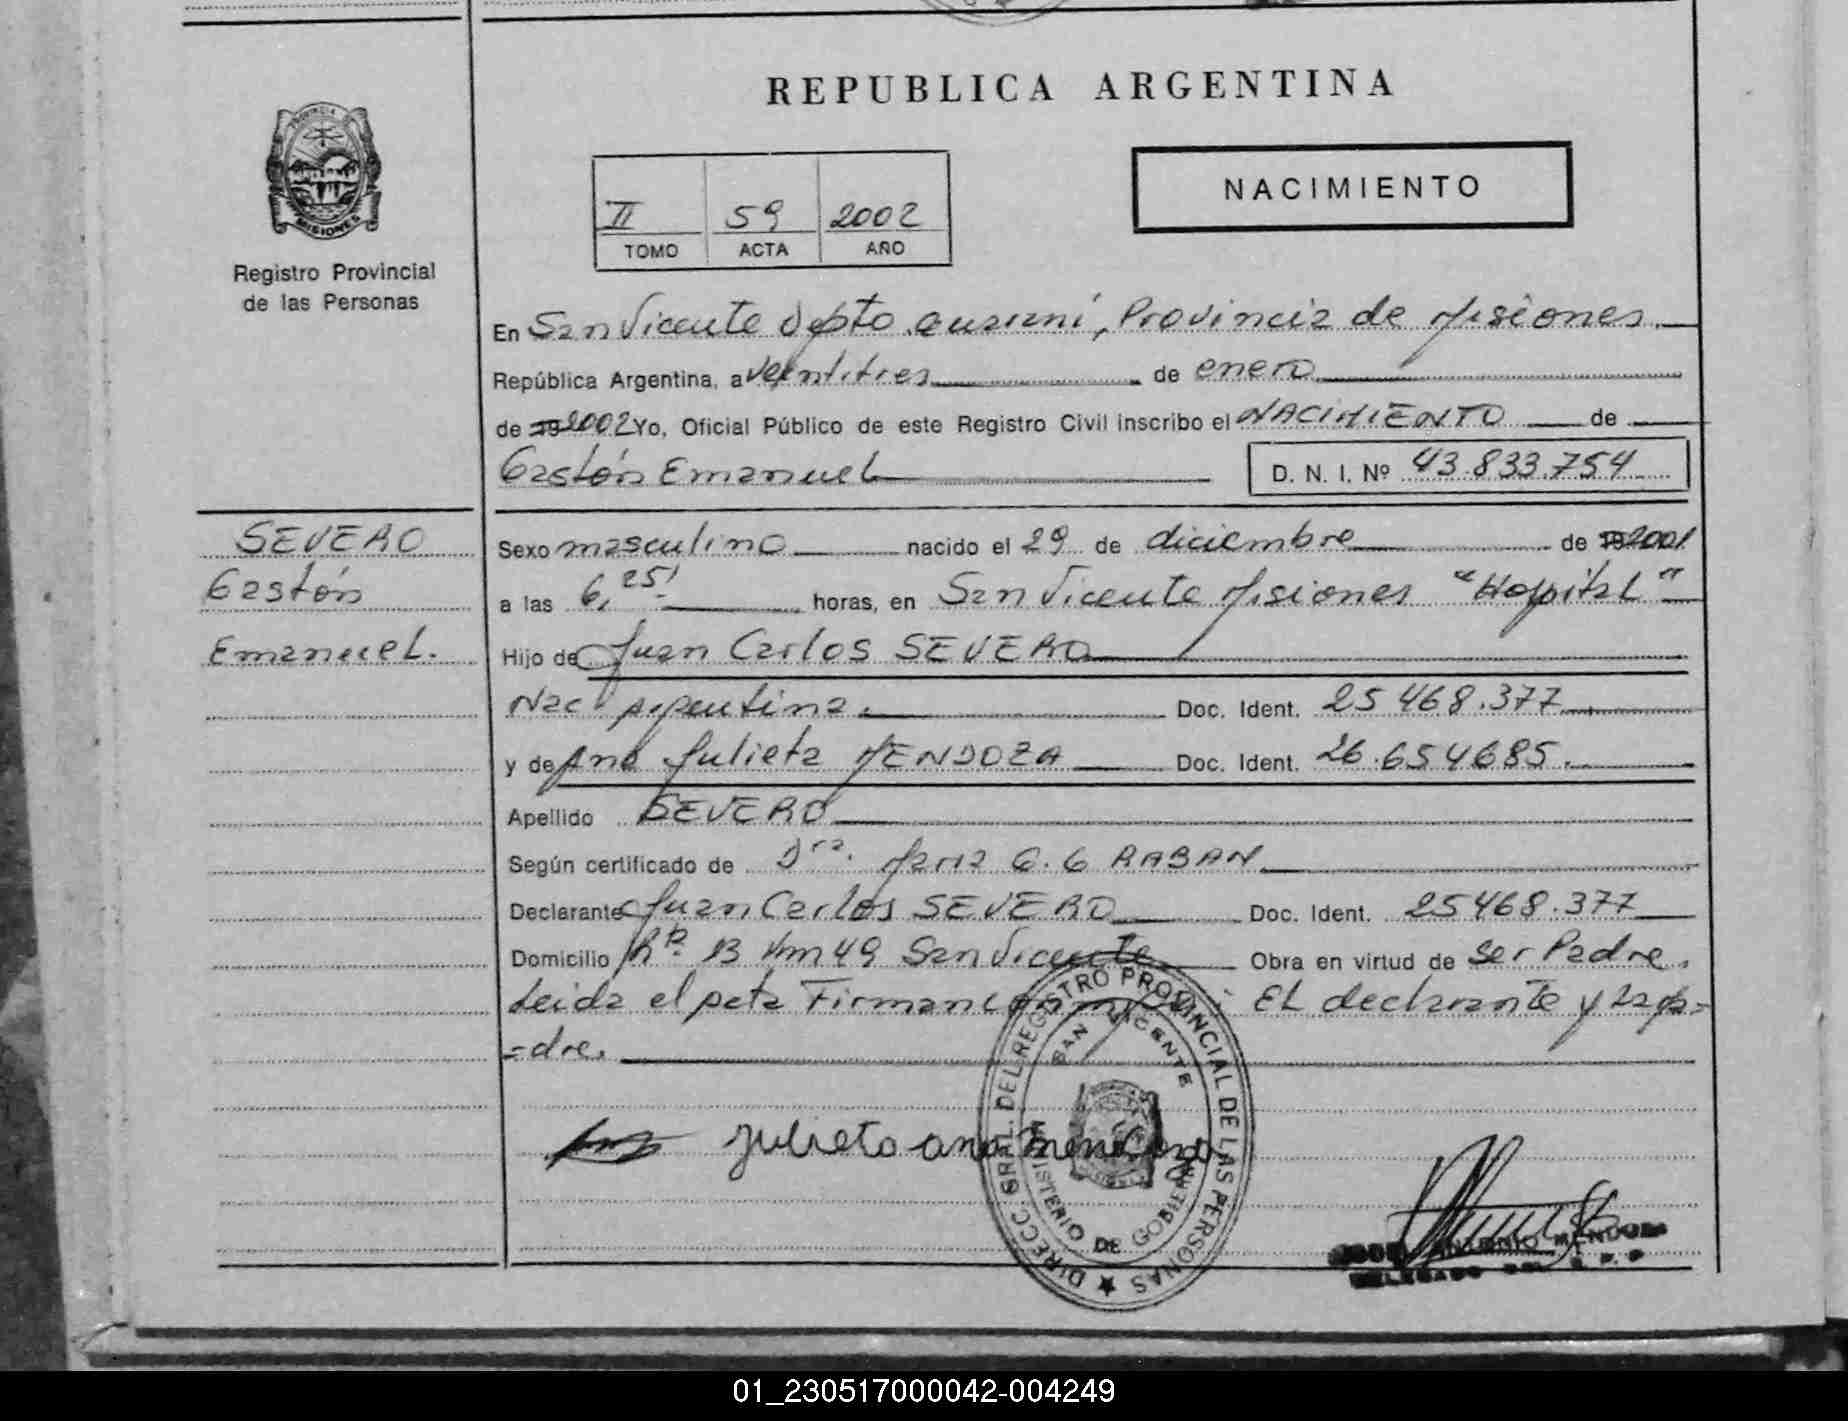 REPUBLICA ARGENTINA
PROVINCIA DE
MISIONES
Registro Provincial
de las Personas
II 59 2002
TOMO ACTA AÑO
NACIMIENTO
En San Vicente Dpto Guaraní, Provincia de Misiones
República Argentina, a veintitres de enero
de 19 2002 Yo, Oficial Público de este Registro Civil inscribo el NACIMIENTO de
Gastón Emanuel D. N. I. Nº 43.833.754
SEVERO
Gastón
Emanuel.
Sexo masculino nacido el 29 de diciembre de 19 2001
a las 6,25' horas, en San Vicente Misiones "Hospital"
Hijo de Juan Carlos SEVERO
Nac Argentina. Doc. Ident. 25 468.377
y de Ana Julieta MENDOZA Doc. Ident. 26.654685.
Apellido SEVERO
Según certificado de Dra. Maria G. G RABAN
Declarante Juan Carlos SEVERO Doc. Ident. 25468.377
Domicilio 13 Km 49 San Vicente Obra en virtud de ser Padre.
Leida el acta Firman El declarante y la ma=
=dre.
julieta ana mendoza
DIRECC. GRAL. DEL REGISTRO PROVINCIAL DE LAS PERSONAS
SAN VICENTE
MINISTERIO DE GOBIERNO
ANTONIO MENDOZA
DELEGADO
01_230517000042-004249